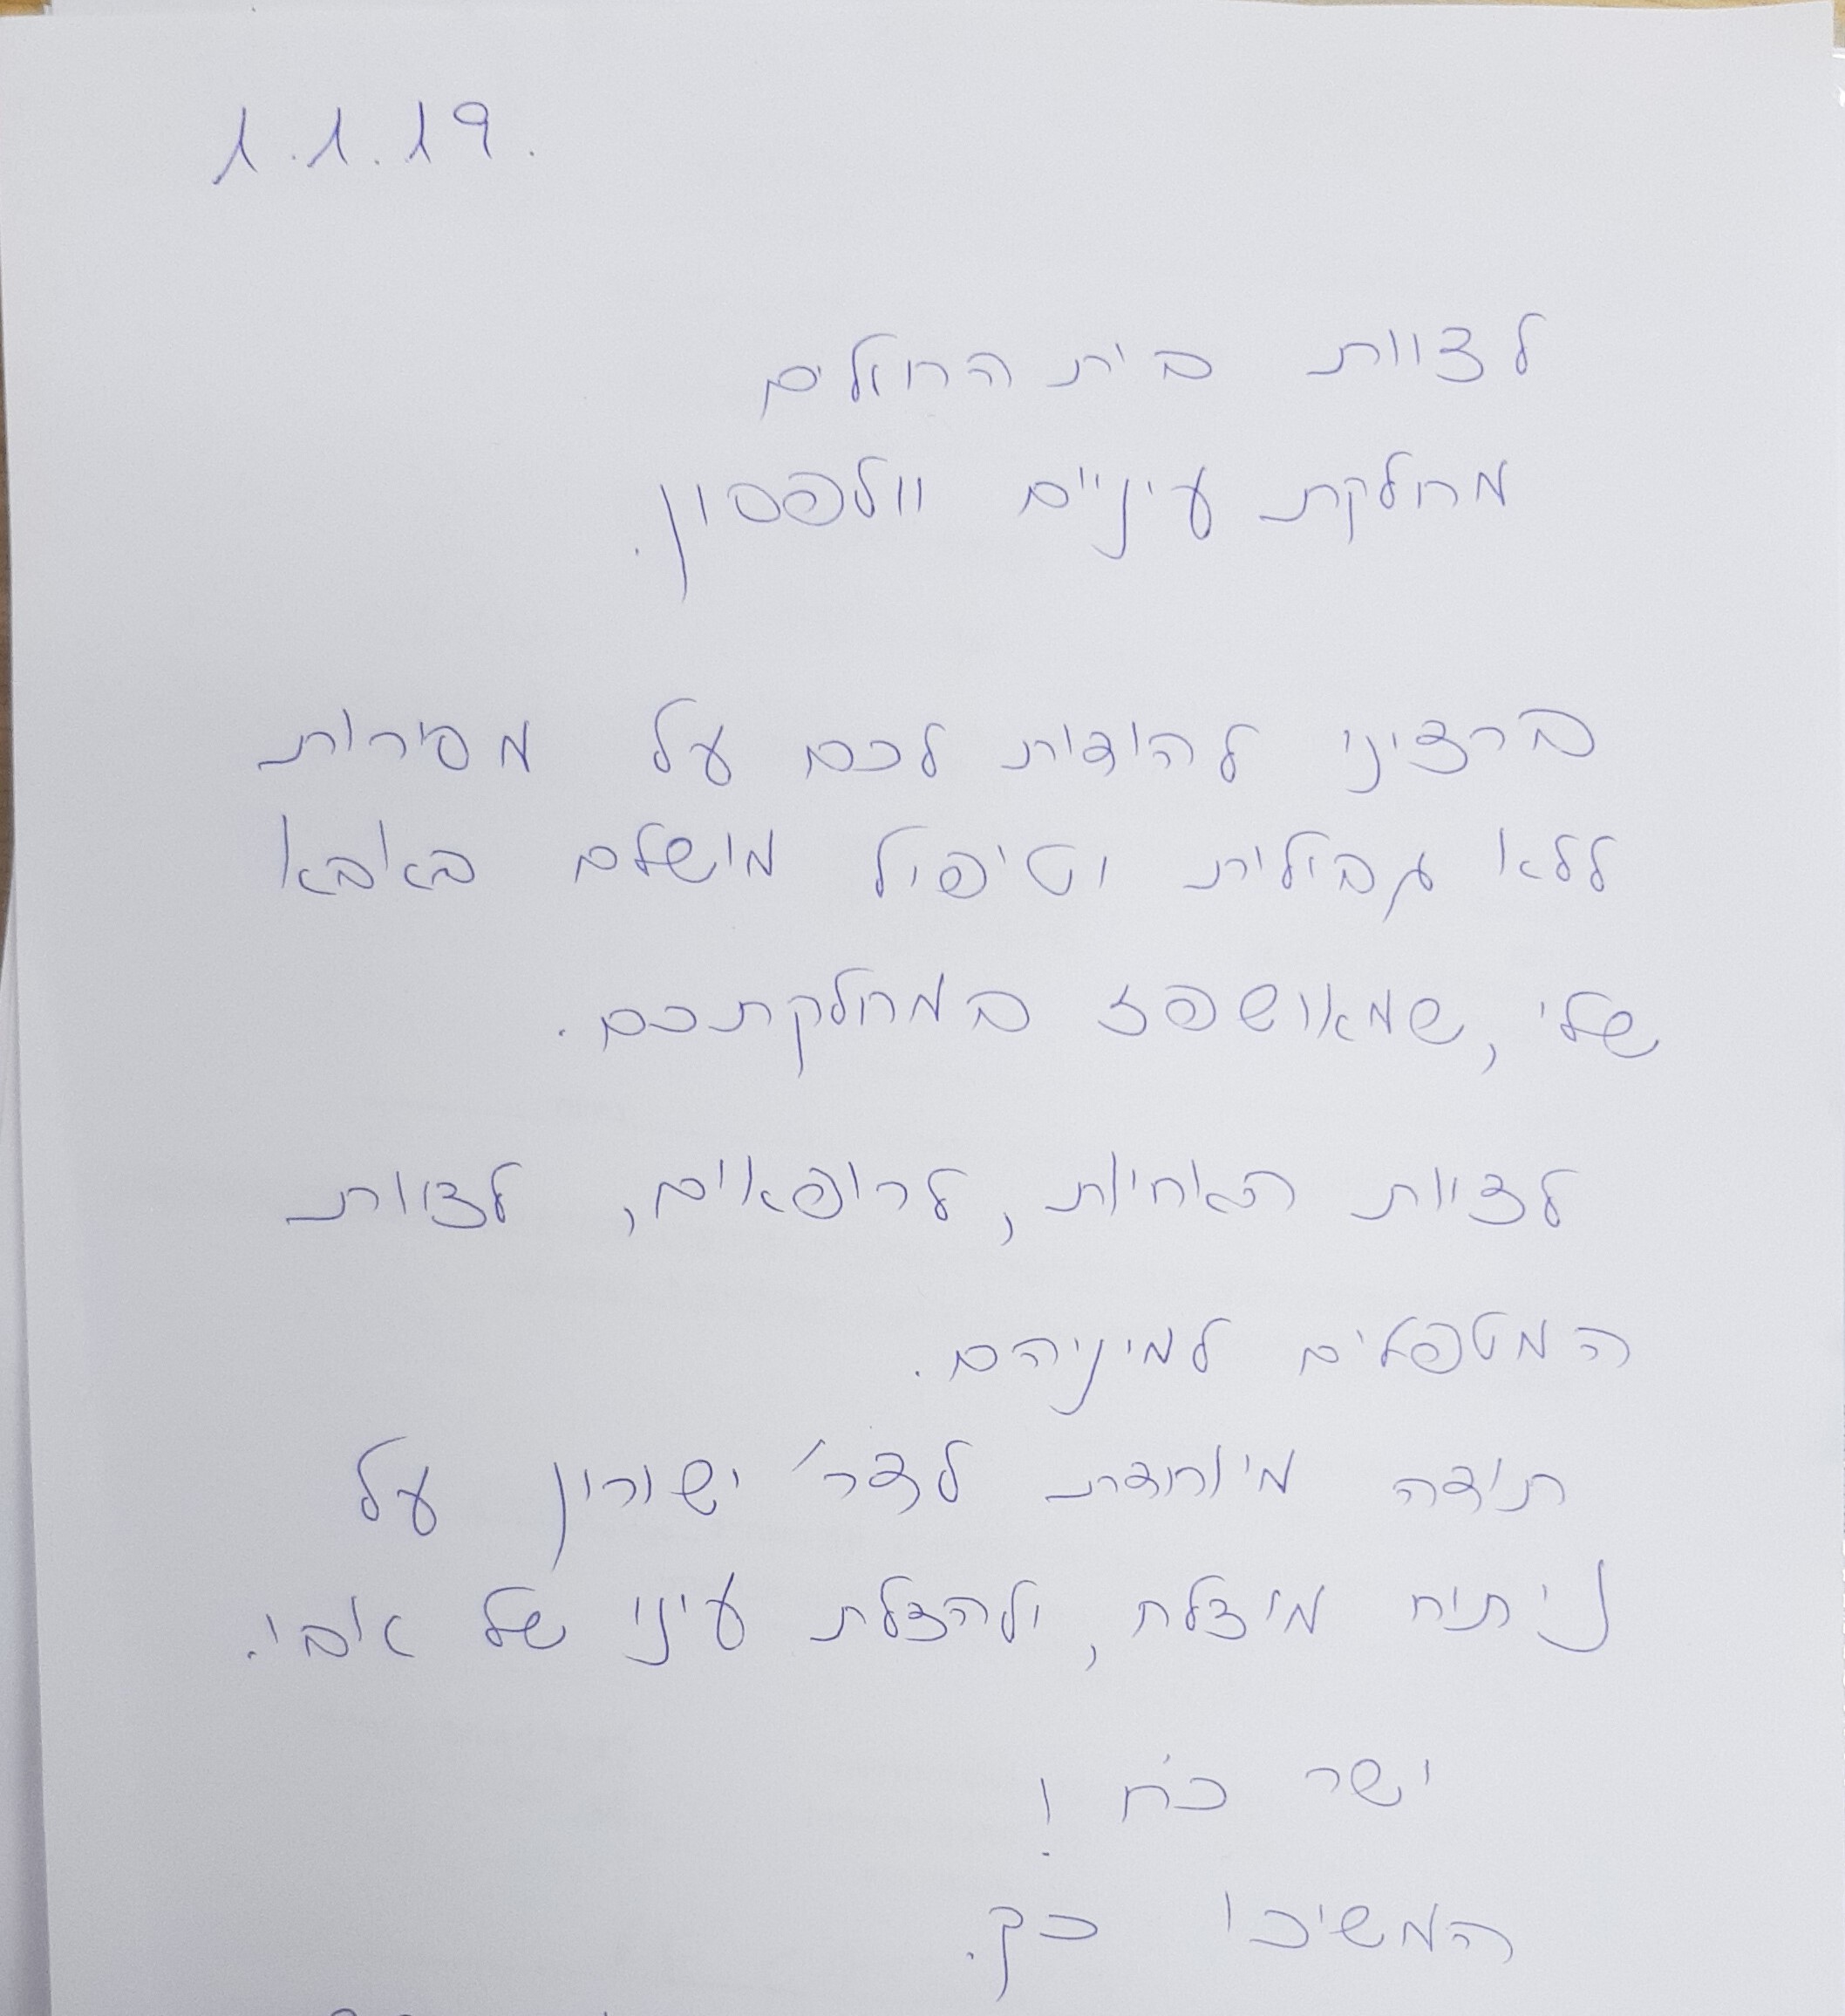 1.1.19.
לצוות בית החולים
מחלקת עיניים וולפסון.
ברצוני להודות לכם על מסירות
ללא גבולית וטיפול מושלם באבא
שלי, שמאושפז במחלקתכם.
לצוות האחיות, לרופאים, לצוות
המטפלים למיניהם.
תודה מיוחדת לדר' ישורון על
ניתוח מוצלח, ולהצלת עיני של אבי.
ישר כח!
המשיכו כך.